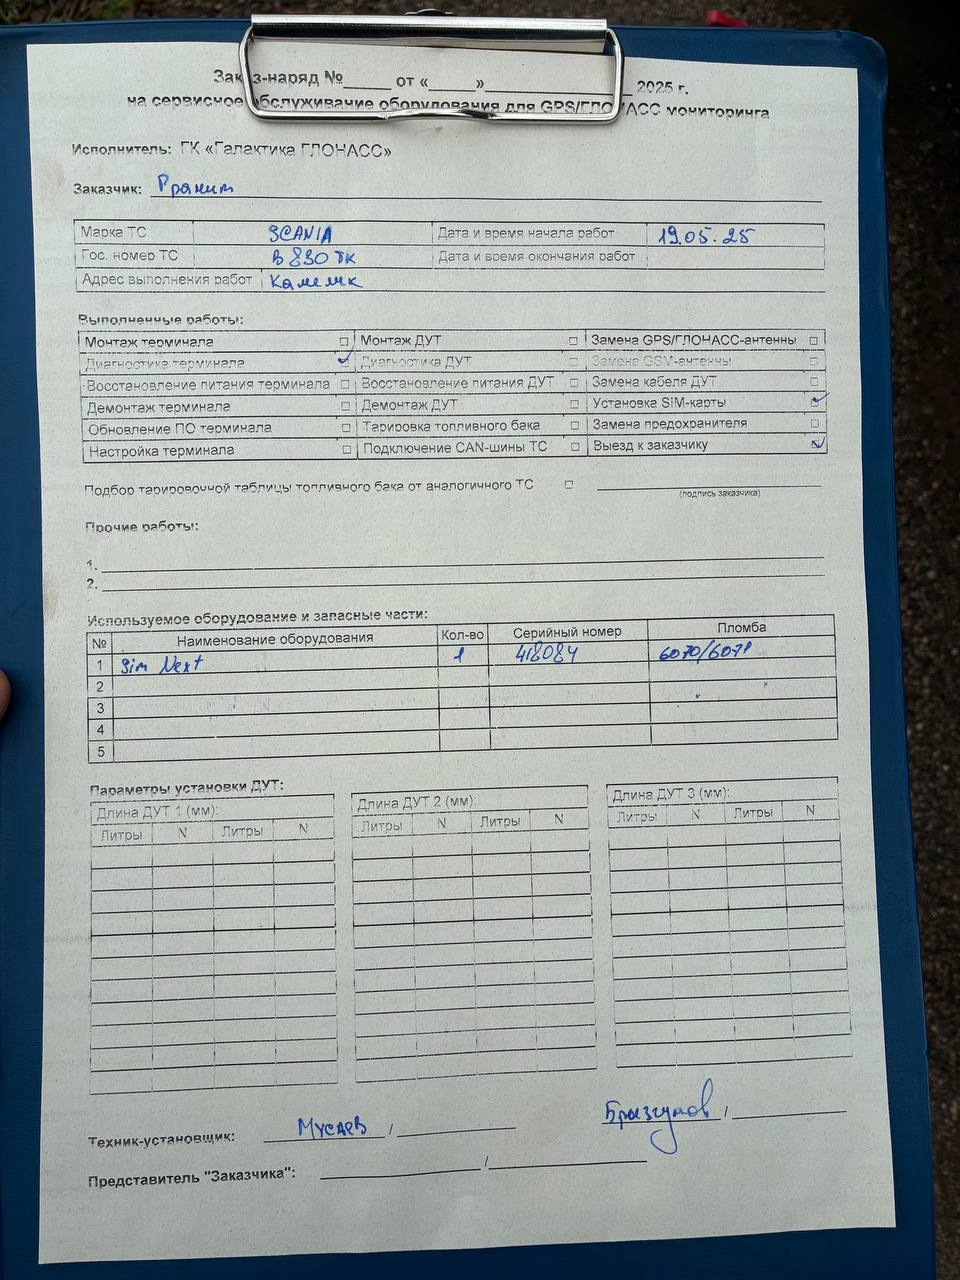 Заказ-наряд №_____ от «_____»_______________ 2025 г.
на сервисное обслуживание оборудования для GPS/ГЛОНАСС мониторинга
Исполнитель: ГК «Галактика ГЛОНАСС»
Заказчик: Гранит
Марка ТС SCANIA Дата и время начала работ 19.05.25
Гос. номер ТС В 830 ТК Дата и время окончания работ
Адрес выполнения работ
Выполненные работы:
Монтаж терминала ☐ Монтаж ДУТ ☐ Замена GPS/ГЛОНАСС-антенны ☐
Диагностика терминала ☑ Диагностика ДУТ ☐ Замена GSM-антенны ☐
Восстановление питания терминала ☐ Восстановление питания ДУТ ☐ Замена кабеля ДУТ ☐
Демонтаж терминала ☐ Демонтаж ДУТ ☐ Установка SIM-карты ☑
Обновление ПО терминала ☐ Тарировка топливного бака ☐ Замена предохранителя ☐
Настройка терминала ☐ Подключение CAN-шины ТС ☐ Выезд к заказчику ☑
Подбор тарировочной таблицы топливного бака от аналогичного ТС ☐
(подпись заказчика)
Прочие работы:
1.
2.
Используемое оборудование и запасные части:
№ Наименование оборудования Кол-во Серийный номер Пломба
1 Sim Next 1 418084 6070/6071
2
3
4
5
Параметры установки ДУТ:
Длина ДУТ 1 (мм): Длина ДУТ 2 (мм): Длина ДУТ 3 (мм):
Литры N Литры N Литры N Литры N Литры N Литры N
Техник-установщик: Мусаев / Брызгунов /
Представитель "Заказчика": /